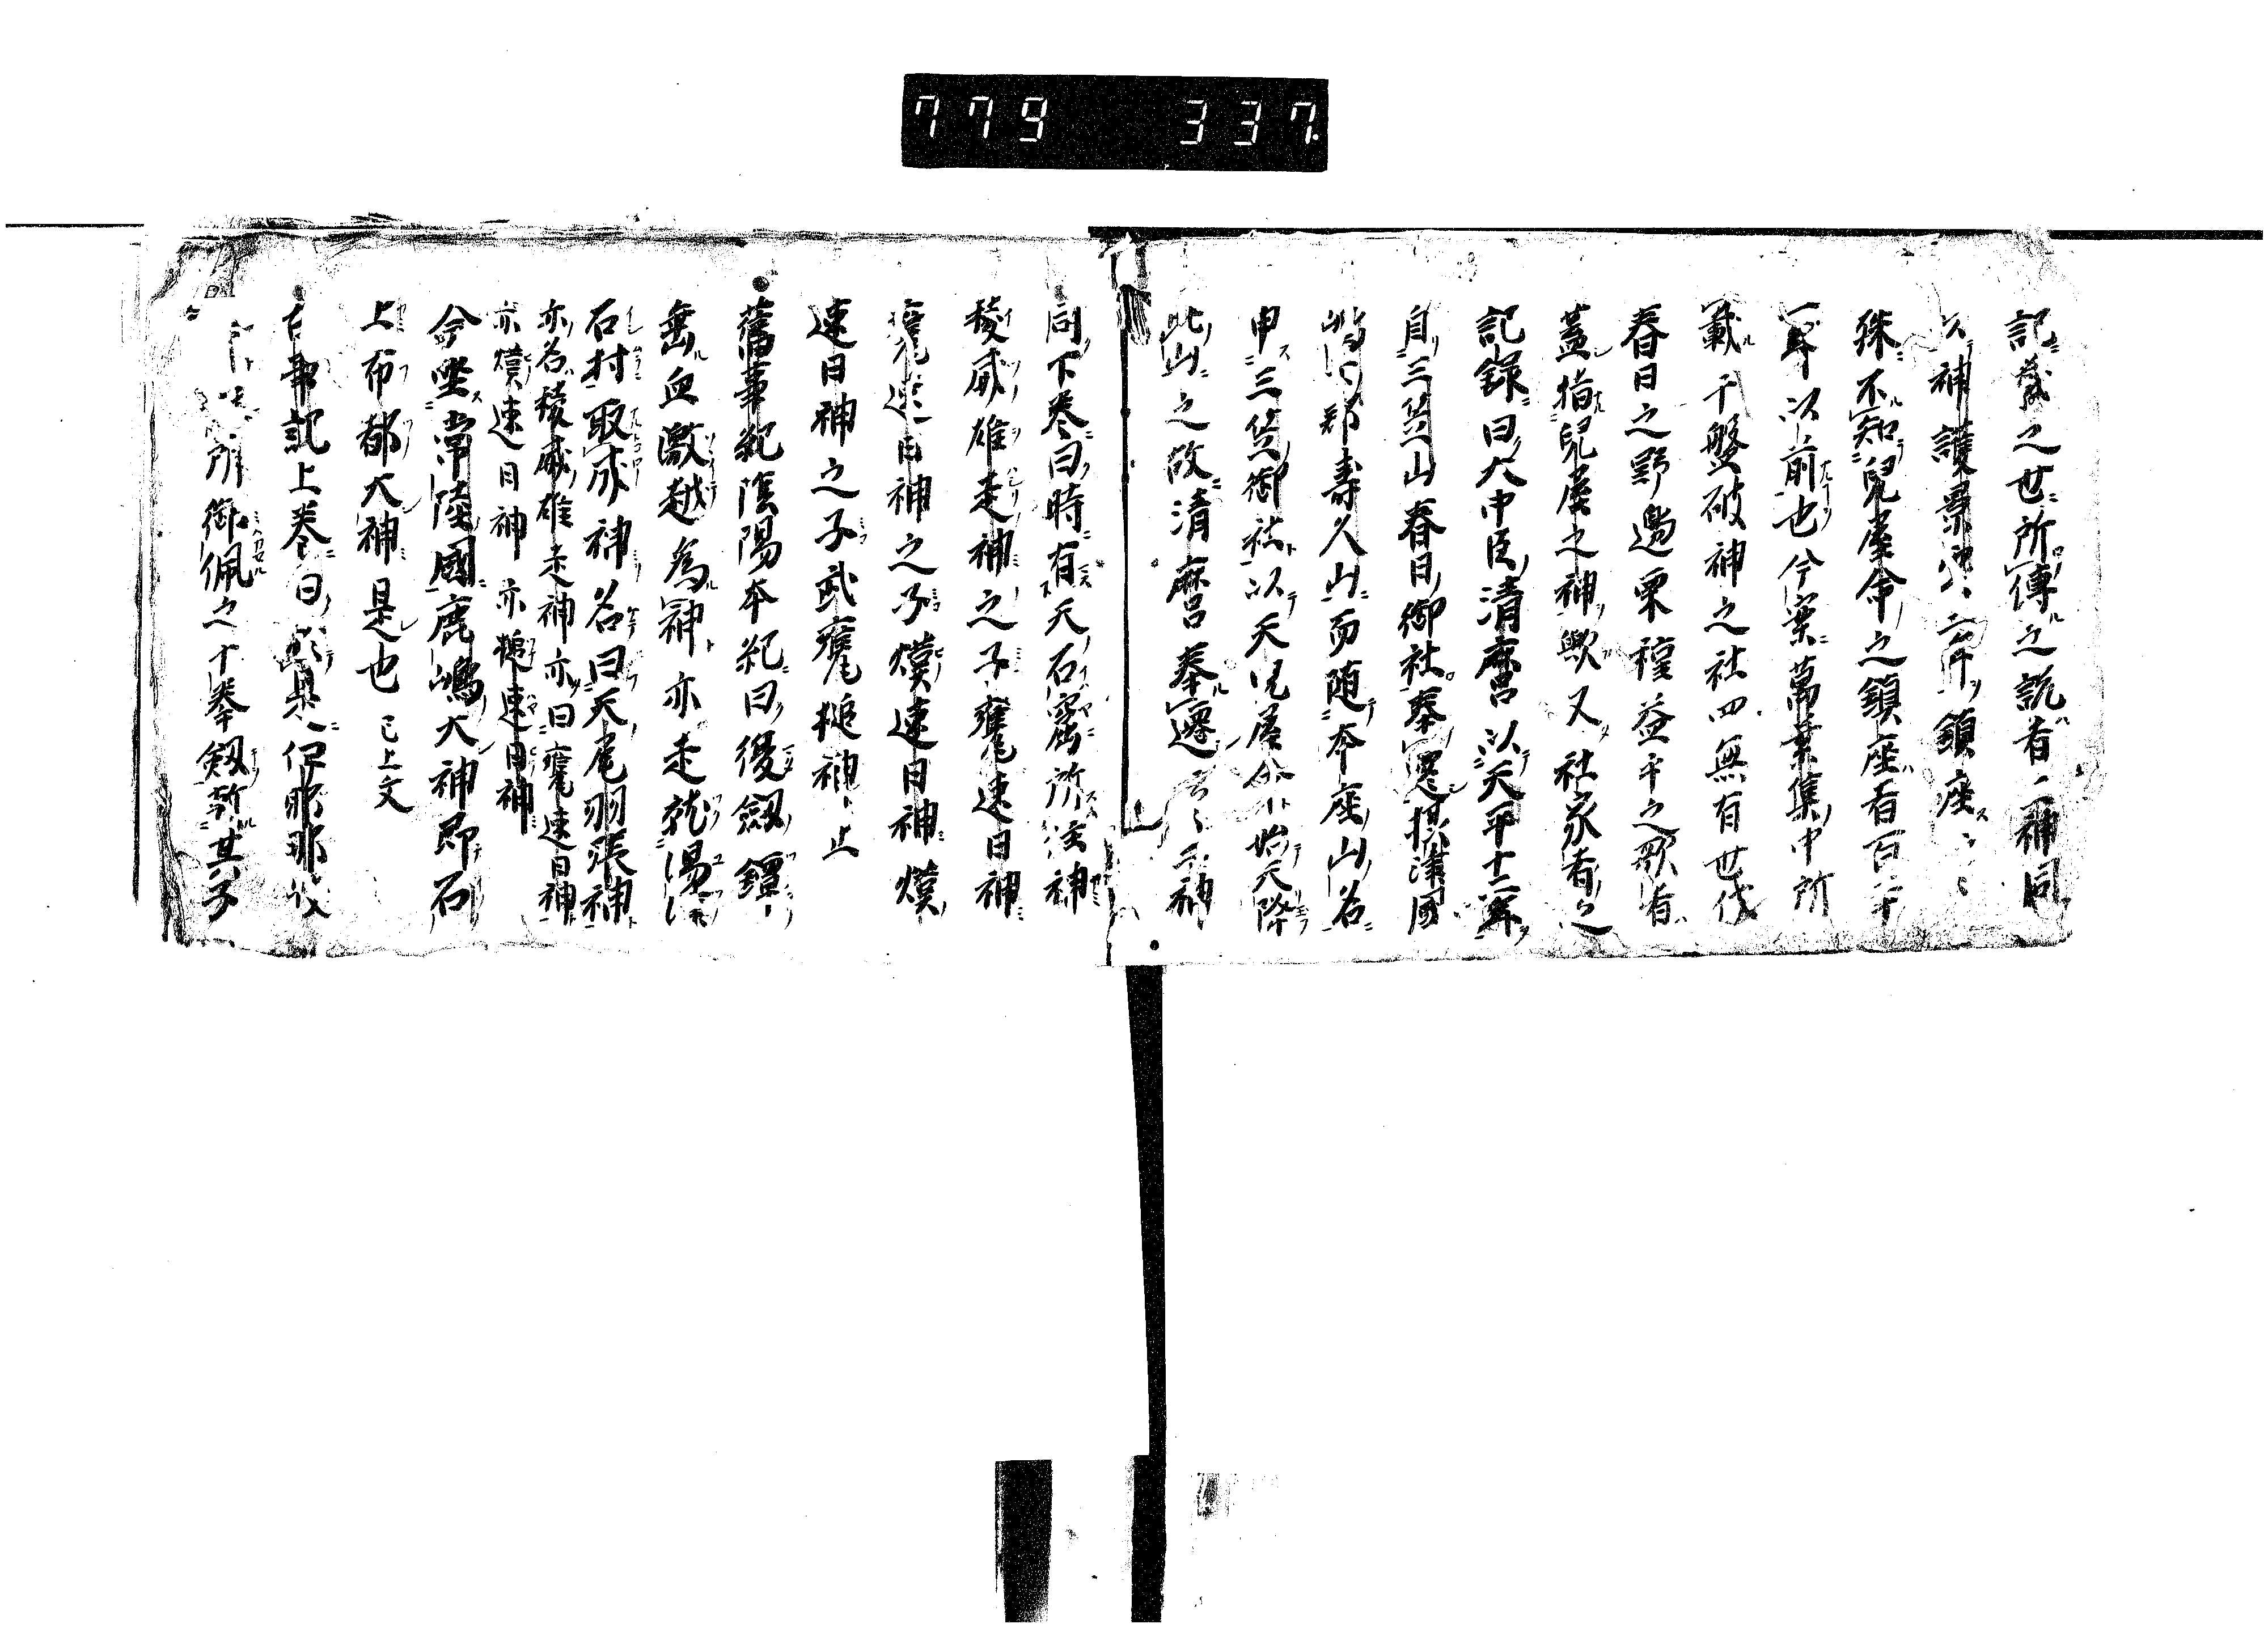 779 337.
記載之世所傳之説者二神同
神護景雲二年鎮座
殊不知兒屋命之鎮座者百千
年以前也今案萬葉集中所
載千磐破神之社四無有世伐
春日之野邊粟種益乎之歌者
蓋指兒屋之神歟又社家者之
記録曰大中臣清麿以天平十二年
自三笠山春日御社奉遷摂津国
嶋下郡壽久山而随本座山名
申三笠御社以天児屋命始天降
此山之故清麿奉遷云云二神
同下巻曰時有天石窟所住神
稜威雄走神之子甕速日神
甕速日神之子熯速日神熯
速日神之子武甕槌神止
舊事紀陰陽本紀曰復劔鐔
垂血激越為神亦走就湯津
石村取成神名曰天尾羽張神
亦名稜威雄走神亦曰甕速日神
亦熯速日神亦槌速日神
今坐常陸國鹿嶋大神即石
上布都大神是也 已上文
古事記上巻曰於是伊耶那岐
所御佩之十拳劔斬其子